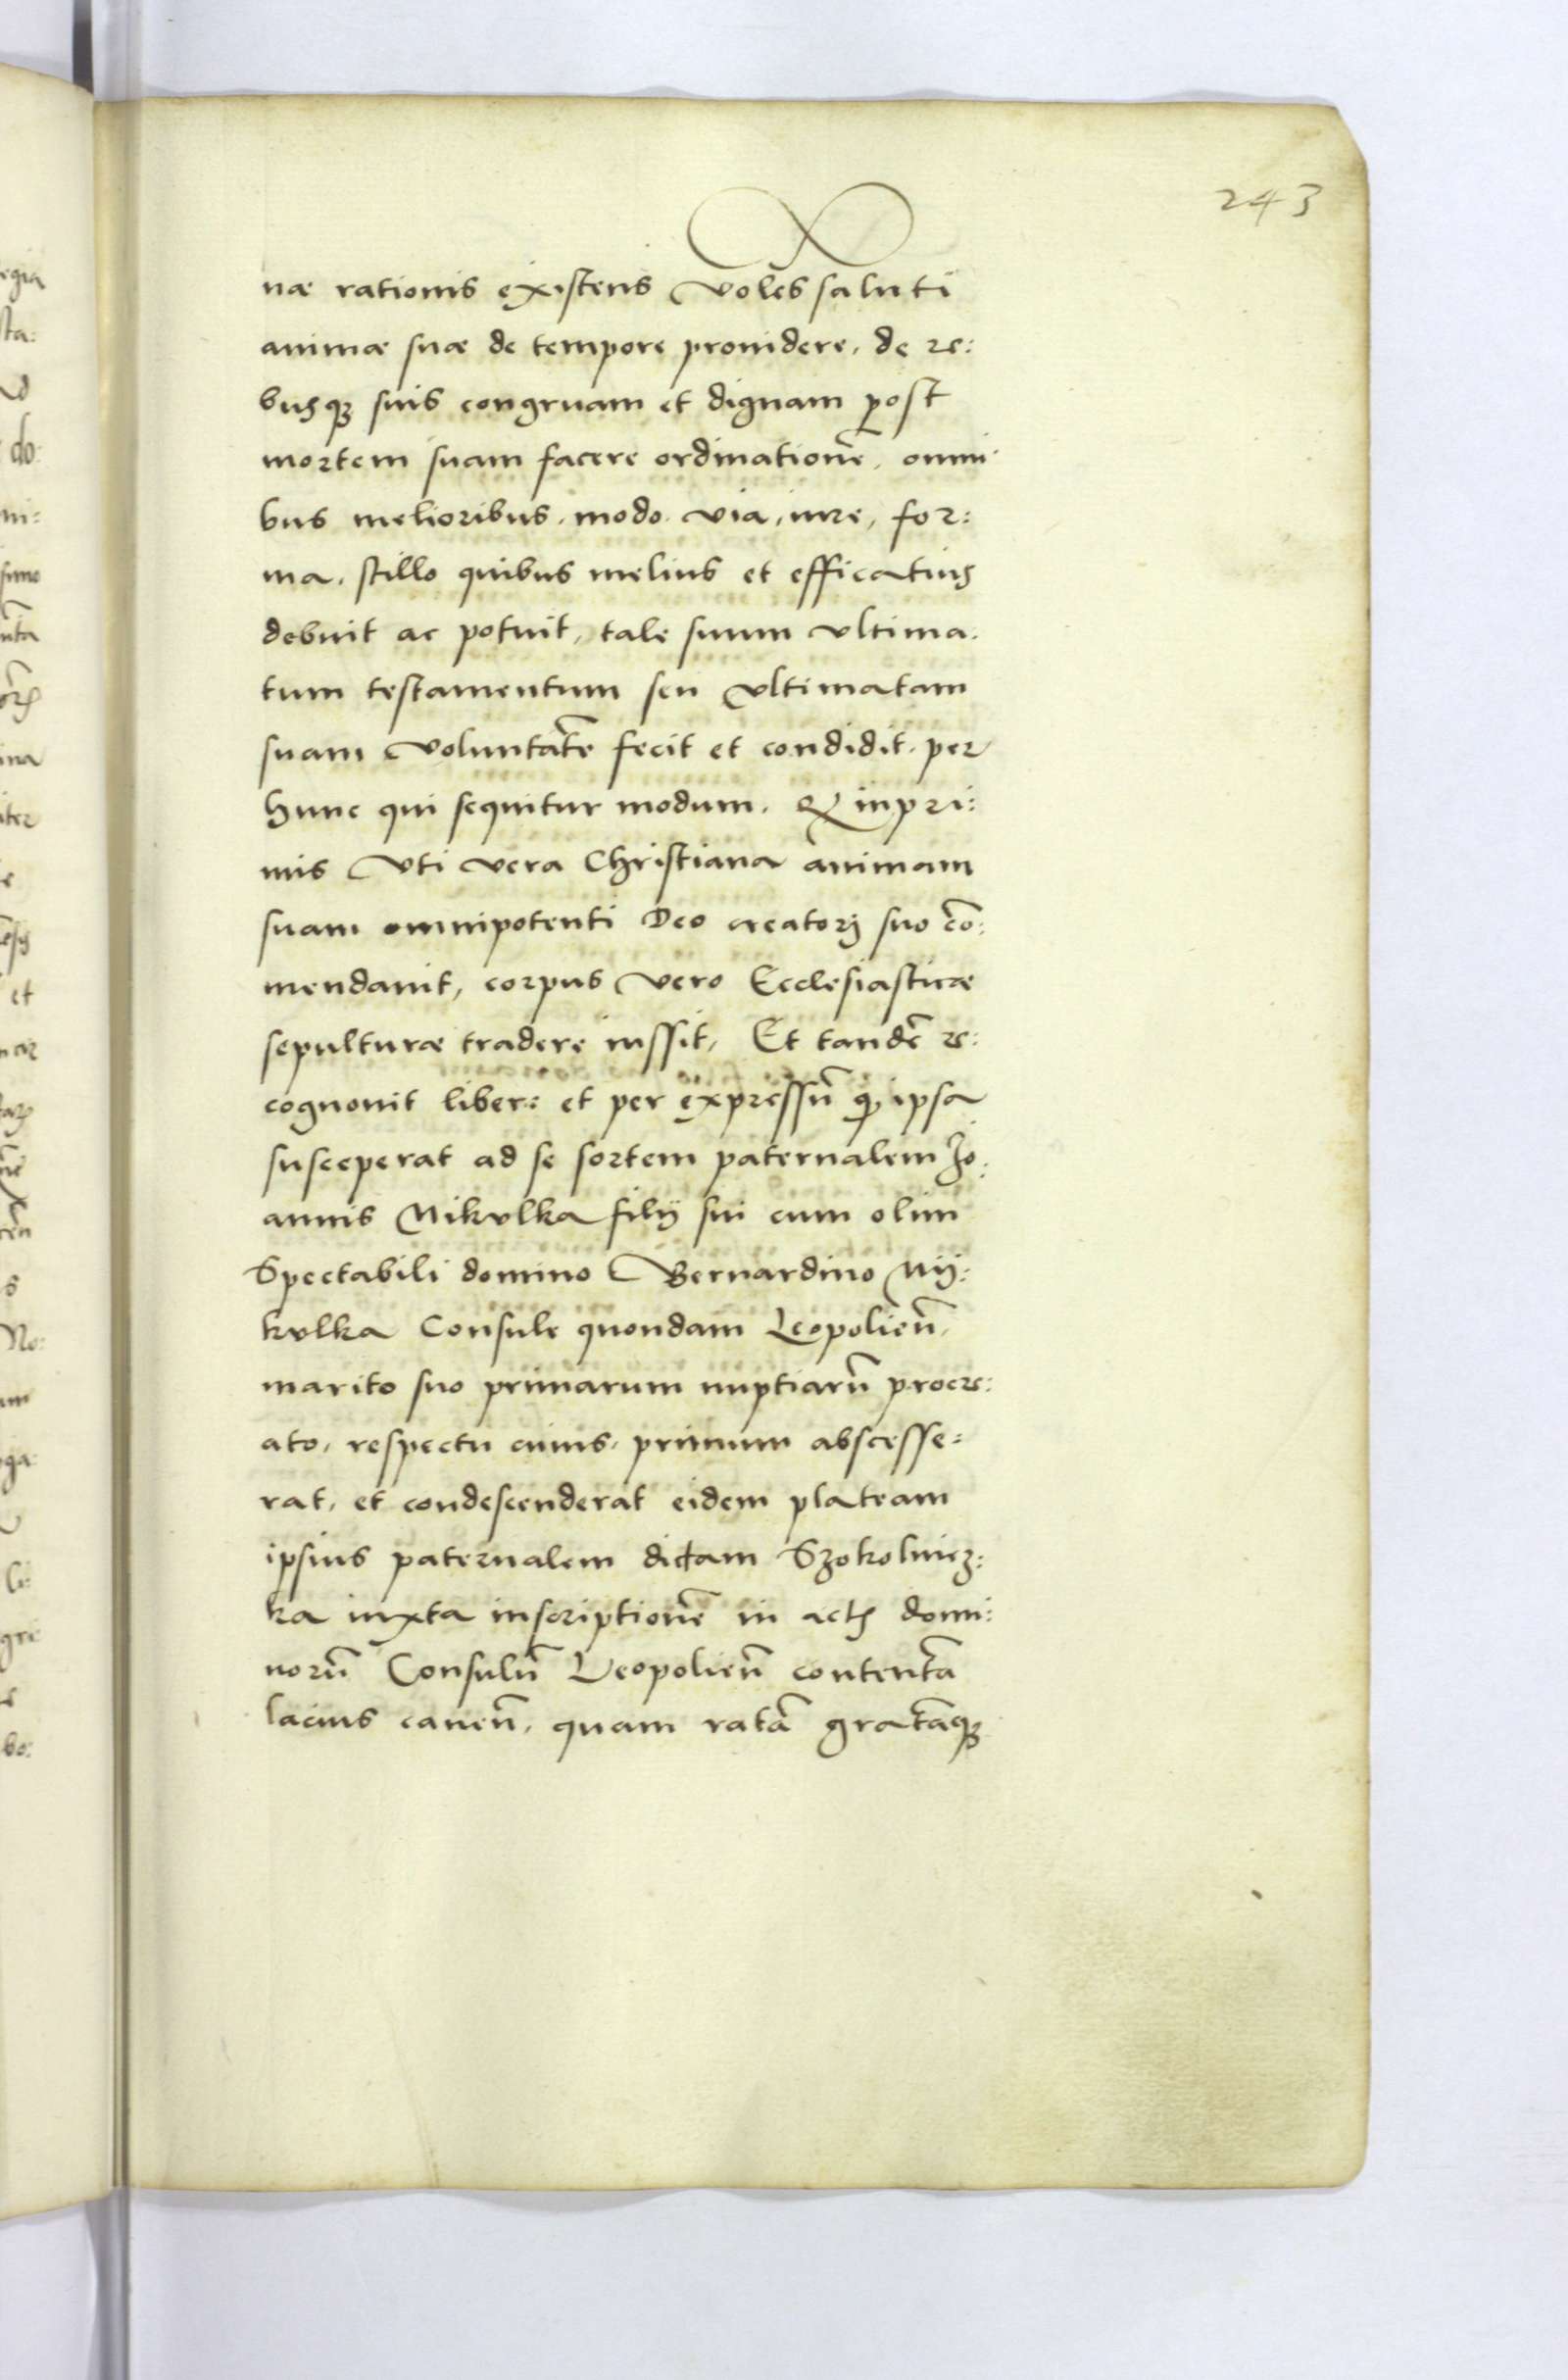 243
næ rationis existens voles saluti
animæ suæ de tempore prouidere, de re:
busq₃ suis congruam et dignam post
mortem suam facere ordinationē, omni
bus melioribus, modo, via, iure, for:
ma, stillo quibus melius et efficatius
debuit ac potuit, tale suum vltima:
tum testamentum seu vltimatam
suam voluntatē fecit et condidit, per
hunc qui sequitur modum. Et inpri:
mis vti vera Christiana animam
suam omnipotenti Deo creatorj suo cō:
mendauit, corpus vero Ecclesiasticæ
sepulturæ tradere iussit, Et tandē re:
cognouit liber: et per expressū ꝙ ipsa
susceperat ad se sortem paternalem Jo:
annis Nikulka filij sui cum olim
Spectabili domino Bernardino Nij:
kulka Consule quondam Leopolieñ,
marito suo primarum nuptiarū procre:
ato, respectu cuius, primum abscesse:
rat, et condescenderat eidem plateam
ipsius paternalem dictam Szokolnicz:
ka iuxta inscriptionē in actis domi:
norū Consulū Leopolieñ contentā
lacius caueñ, quam ratā gratāq₃